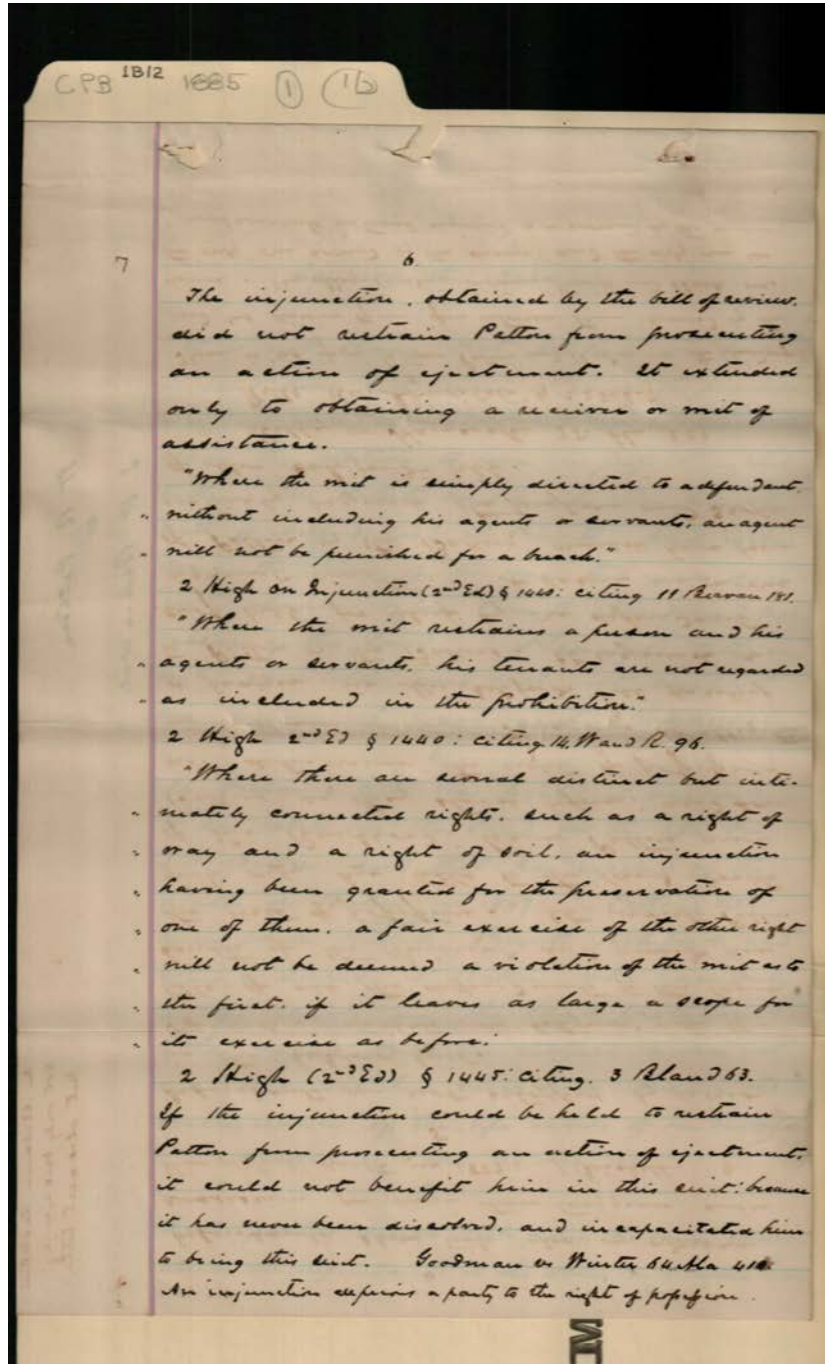 CPB 1B12 1885 ① 1b
7 6.
The injunction, obtained by the bill of review,
did not restrain Patton from prosecuting
an action of ejectment. It extended
only to obtaining a receiver or writ of
assistance.
"Where the writ is simply directed to a defendant,
" without including his agents or servants, an agent
" will not be punished for a breach."
2 High on Injunction (2nd Ed) § 1440: citing 11 Beavan 181.
"Where the writ restrains a person and his
" agents or servants, his tenants are not regarded
" as included in the prohibition."
2 High 2nd Ed § 1440: citing 14, W and R. 96.
"Where there are several distinct but inti-
" mately connected rights, such as a right of
" way and a right of soil, an injunction
" having been granted for the preservation of
" one of them, a fair exercise of the other right
" will not be deemed a violation of the writ as to
" the first, if it leaves as large a scope for
" its exercise as before."
2 High (2nd Ed) § 1445: citing. 3 Bland 63.
If the injunction could be held to restrain
Patton from prosecuting an action of ejectment,
it could not benefit him in this suit: because
it has never been dissolved, and incapacitated him
to bring this suit. Goodman vs Winter 64 Ala 410
An injunction deprives a party to the right of possession.
M